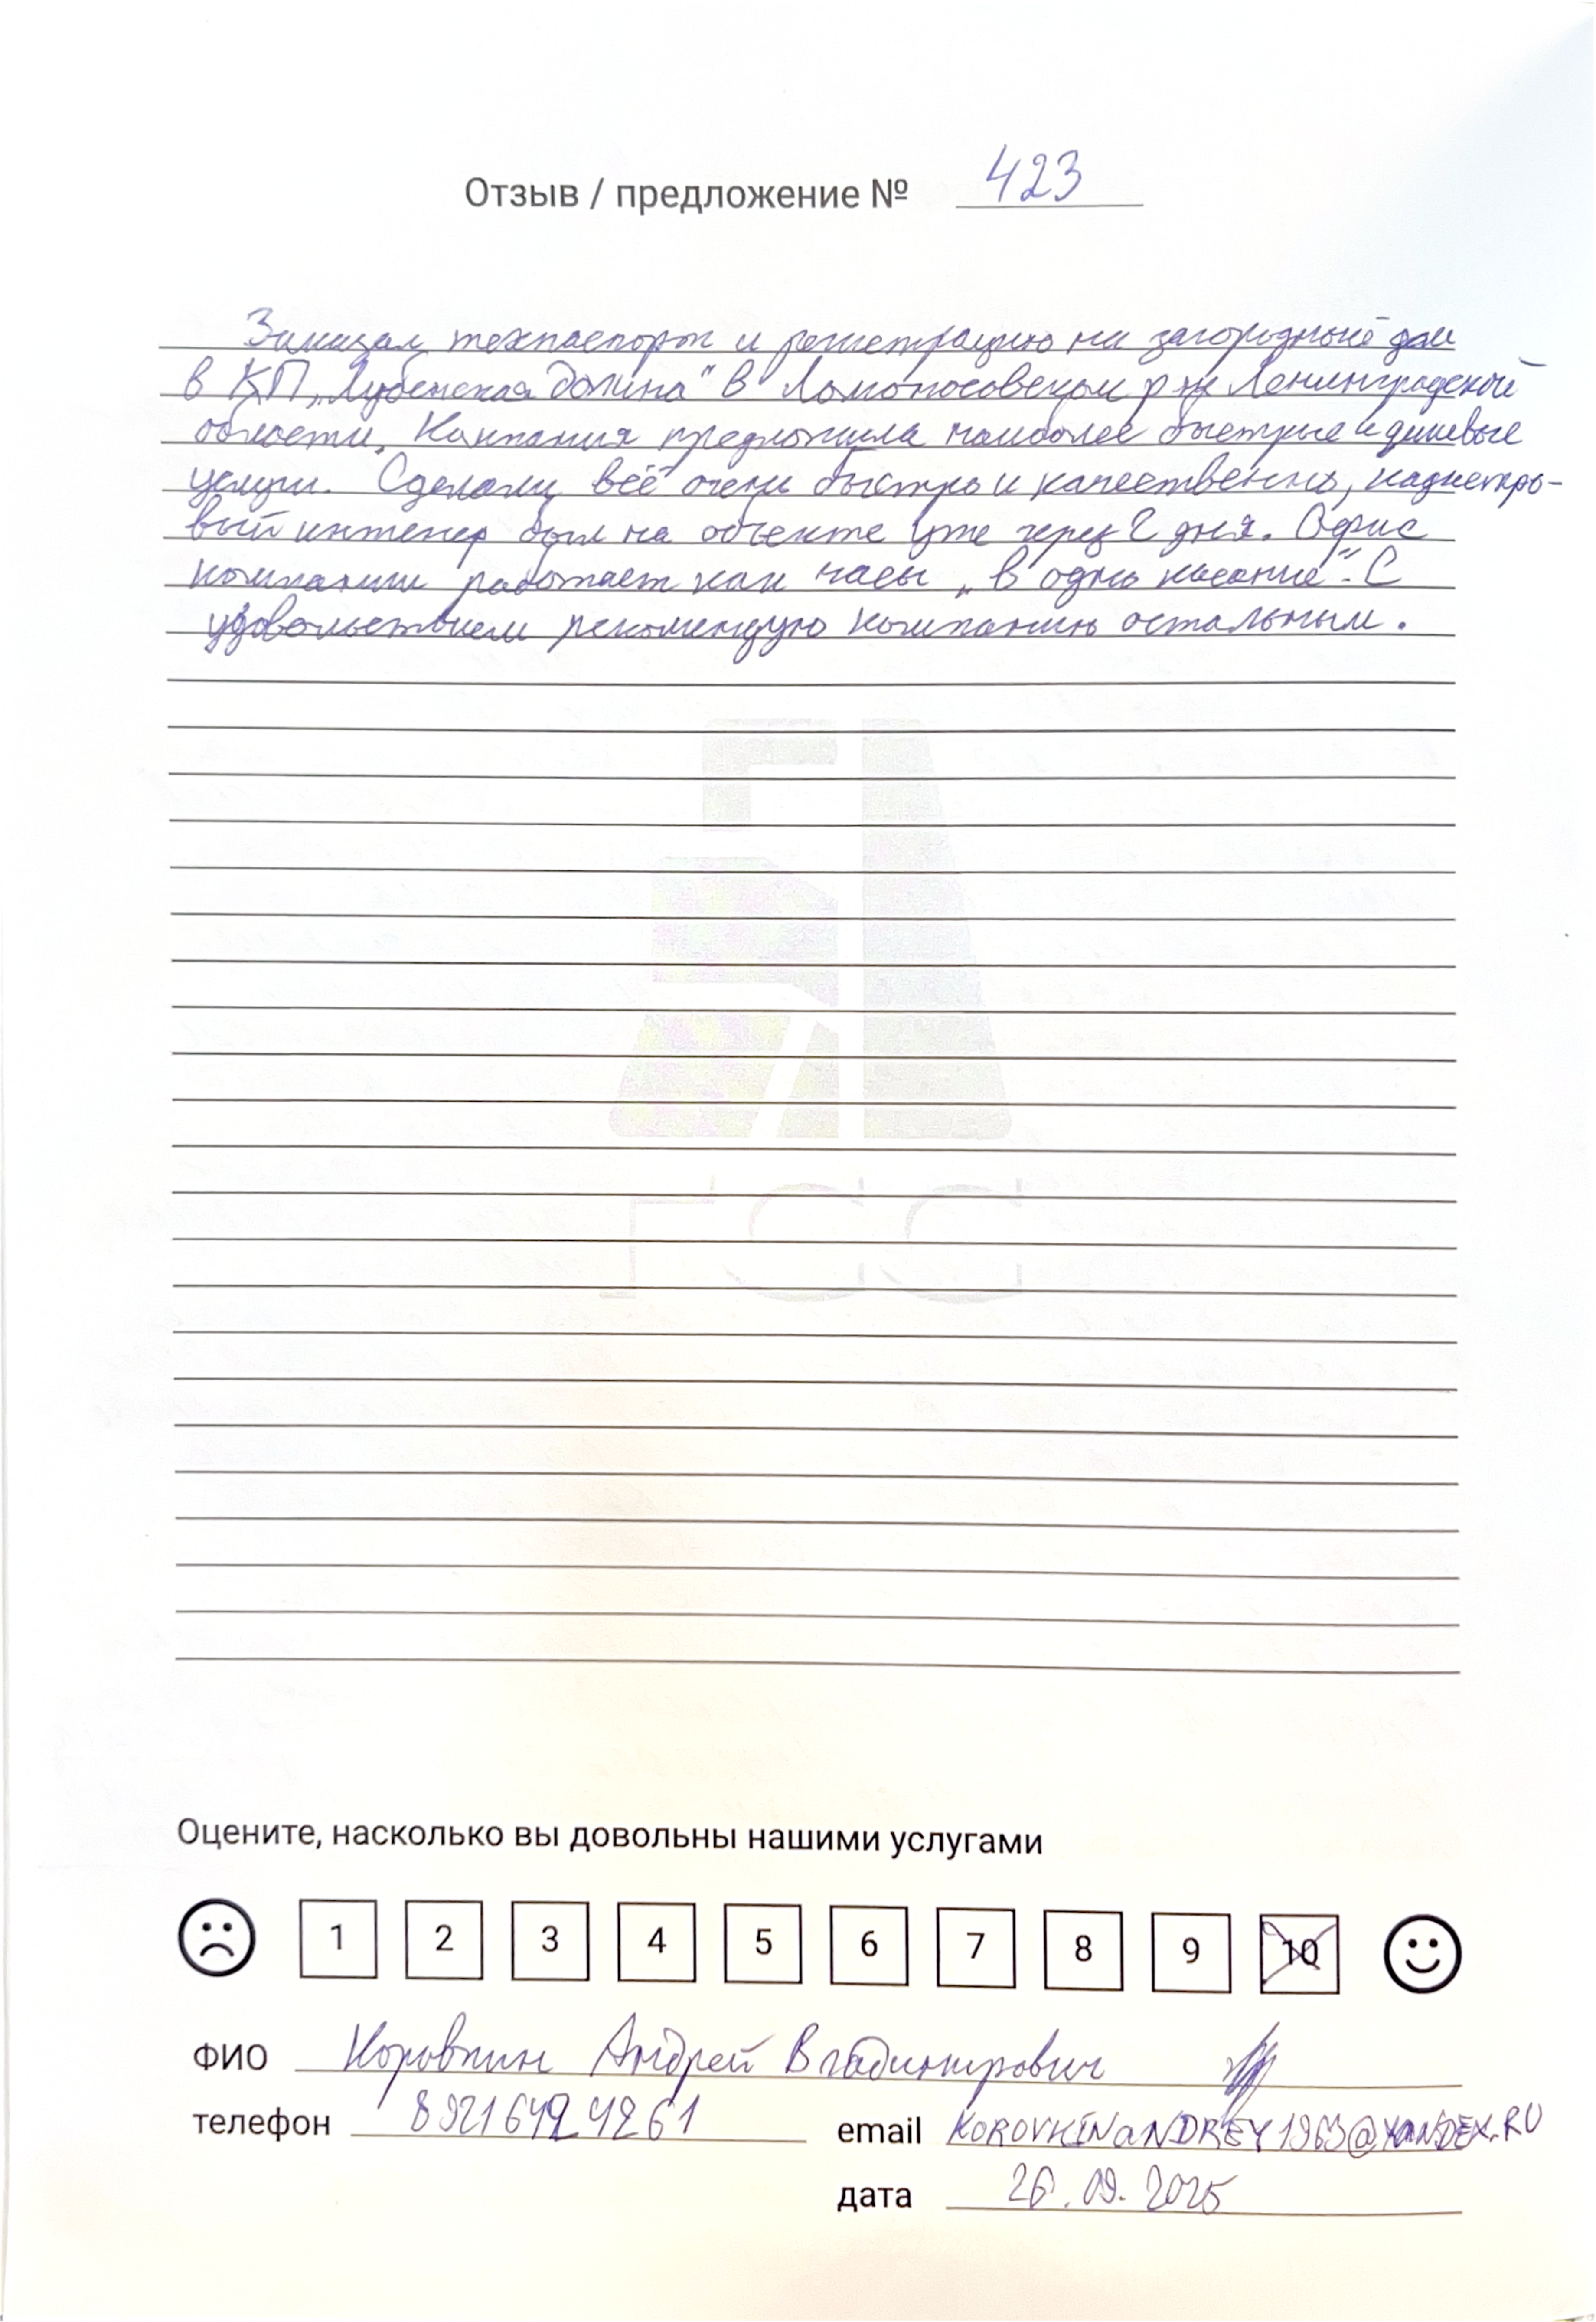 Отзыв / предложение № 423
Заказал техпаспорт и регистрацию на загородный дом
в КП „Лубенская долина" в Ломоносовском р-не Ленинградской
области. Компания предложила наиболее быстрые и дешевые
услуги. Сделали всё очень быстро и качественно, кадастро-
вый инженер был на объекте уже через 2 дня. Офис
компании работает как часы „в одно касание". С
удовольствием рекомендую компанию остальным.
ГСС
Оцените, насколько вы довольны нашими услугами
1 2 3 4 5 6 7 8 9 10
ФИО Коровкин Андрей Владимирович
телефон 89216494261 email KOROVKINaNDREY1963@YANDEX.RU
дата 26.09.2025